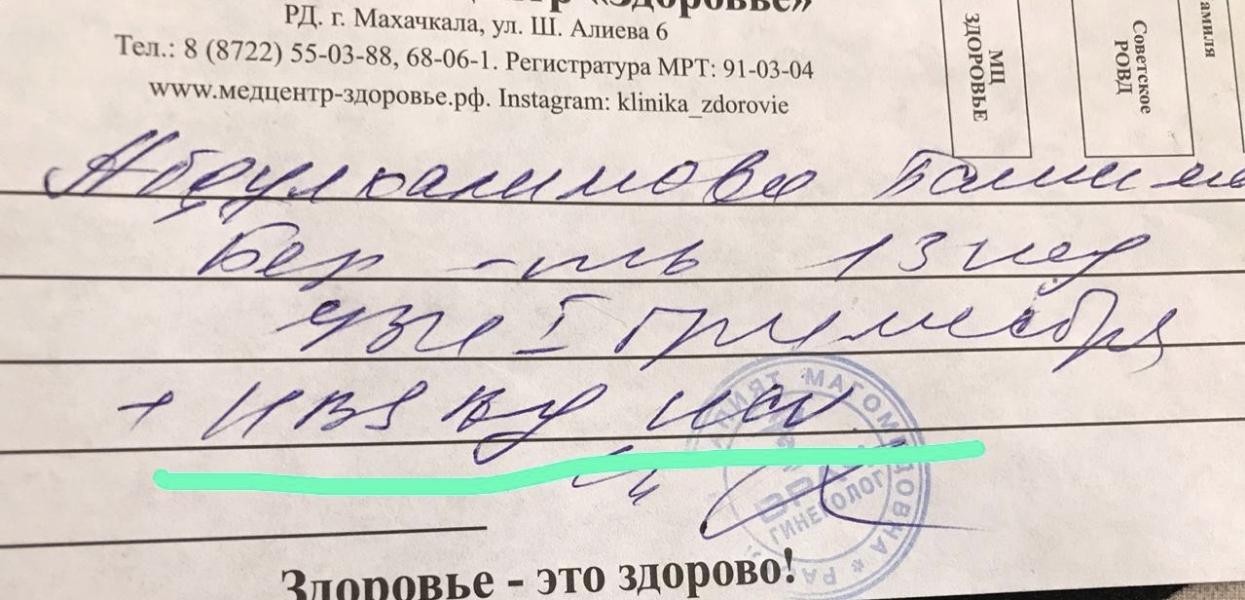 «Здоровье»
РД. г. Махачкала, ул. Ш. Алиева 6
Тел.: 8 (8722) 55-03-88, 68-06-1. Регистратура МРТ: 91-03-04
www.медцентр-здоровье.рф. Instagram: klinika_zdorovie
МЦ
ЗДОРОВЬЕ
Советское
РОВД
Абдулхалимова
Бер-ть 13 нед
узи I триместра
+
МАГОМЕДОВНА
ГИНЕКОЛОГ
Здоровье - это здорово!